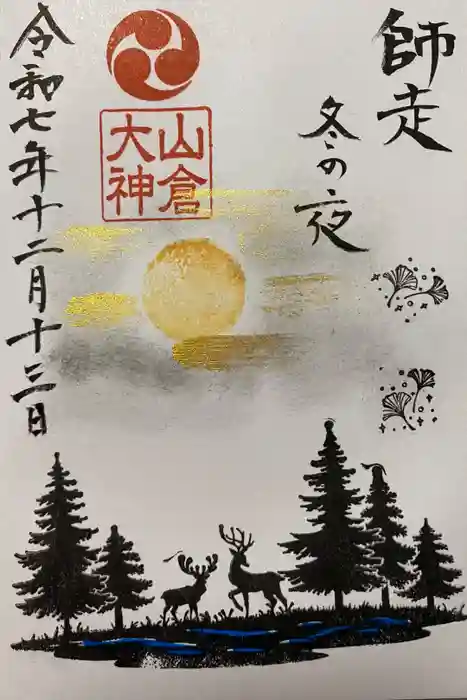 師走
冬の夜
山倉
大神
令和七年十二月十三日